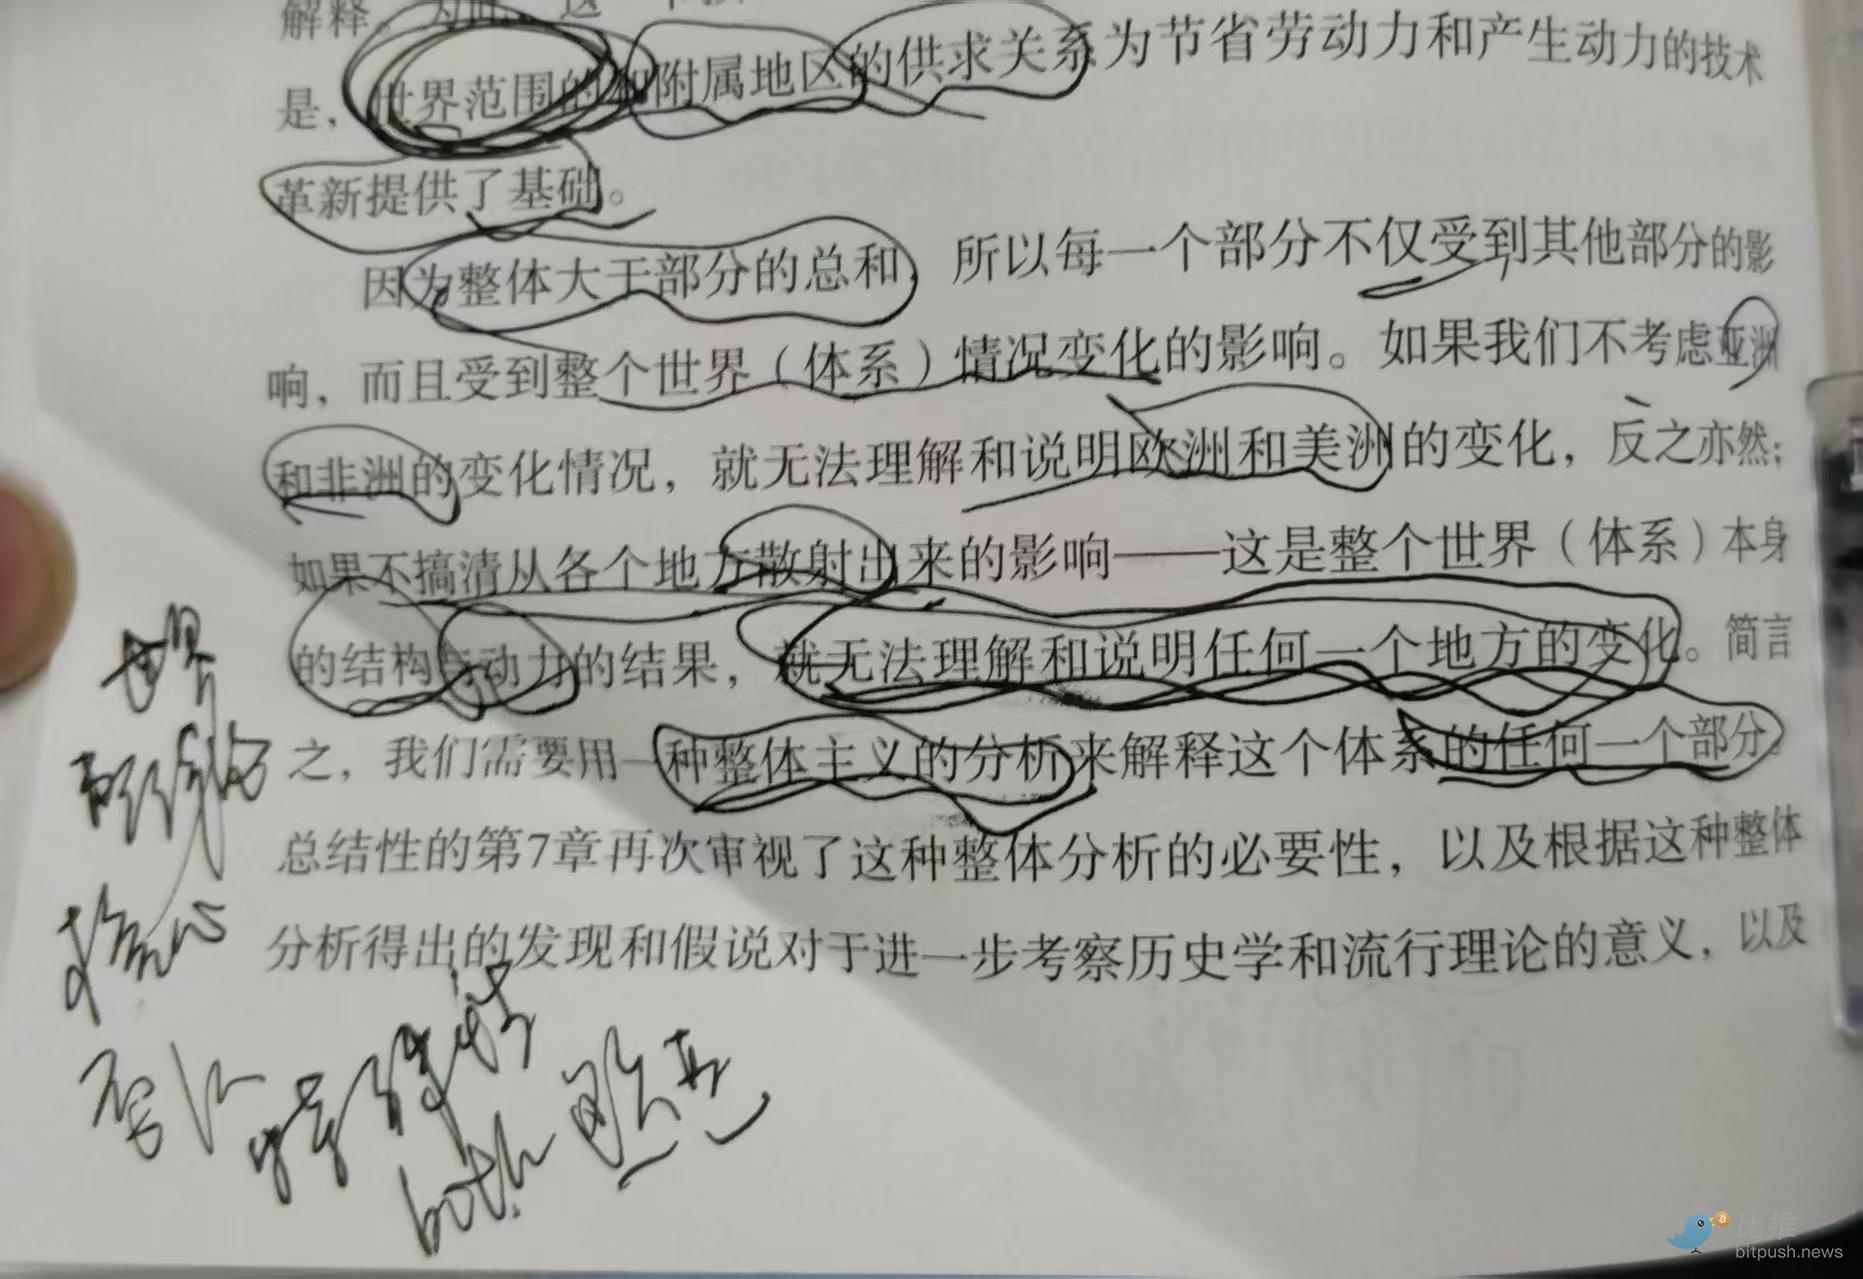 解释。
是，世界范围的和附属地区的供求关系为节省劳动力和产生动力的技术
革新提供了基础。
因为整体大于部分的总和，所以每一个部分不仅受到其他部分的影
响，而且受到整个世界（体系）情况变化的影响。如果我们不考虑亚洲
和非洲的变化情况，就无法理解和说明欧洲和美洲的变化，反之亦然；
如果不搞清从各个地方散射出来的影响——这是整个世界（体系）本身
的结构与动力的结果，就无法理解和说明任何一个地方的变化。简言
之，我们需要用一种整体主义的分析来解释这个体系的任何一个部分。
总结性的第7章再次审视了这种整体分析的必要性，以及根据这种整体
分析得出的发现和假说对于进一步考察历史学和流行理论的意义，以及
世界
核心
both
比推
bitpush.news